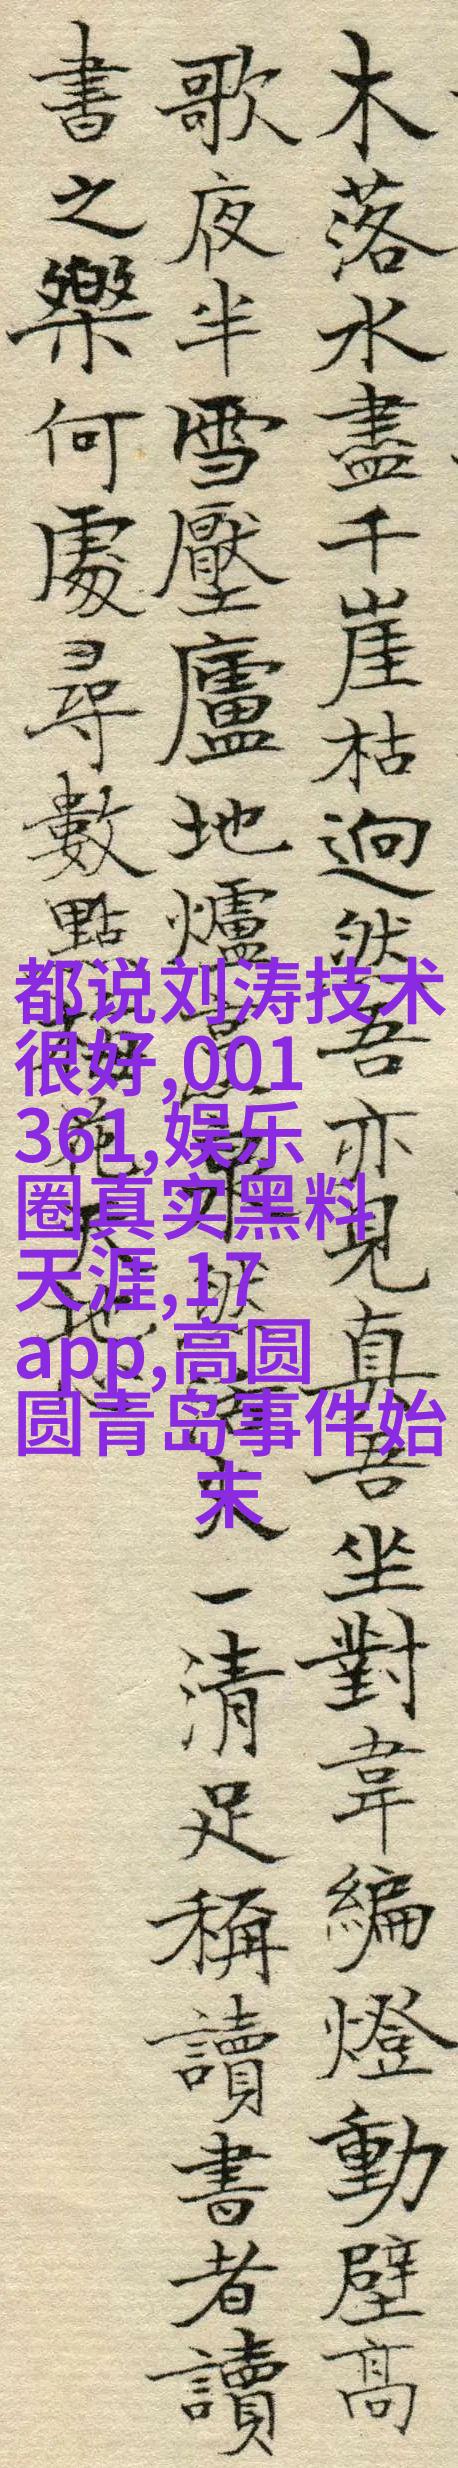 木落水盡千崖枯迥然吾亦見真吾坐對韋編燈動壁高
歌夜半雪壓廬地爐火一清足稱讀書者讀
書之樂何處尋數點花天地
都说刘涛技术
很好,001
361,娱乐
圈真实黑料
天涯,17
app,高圆
圆青岛事件始
末